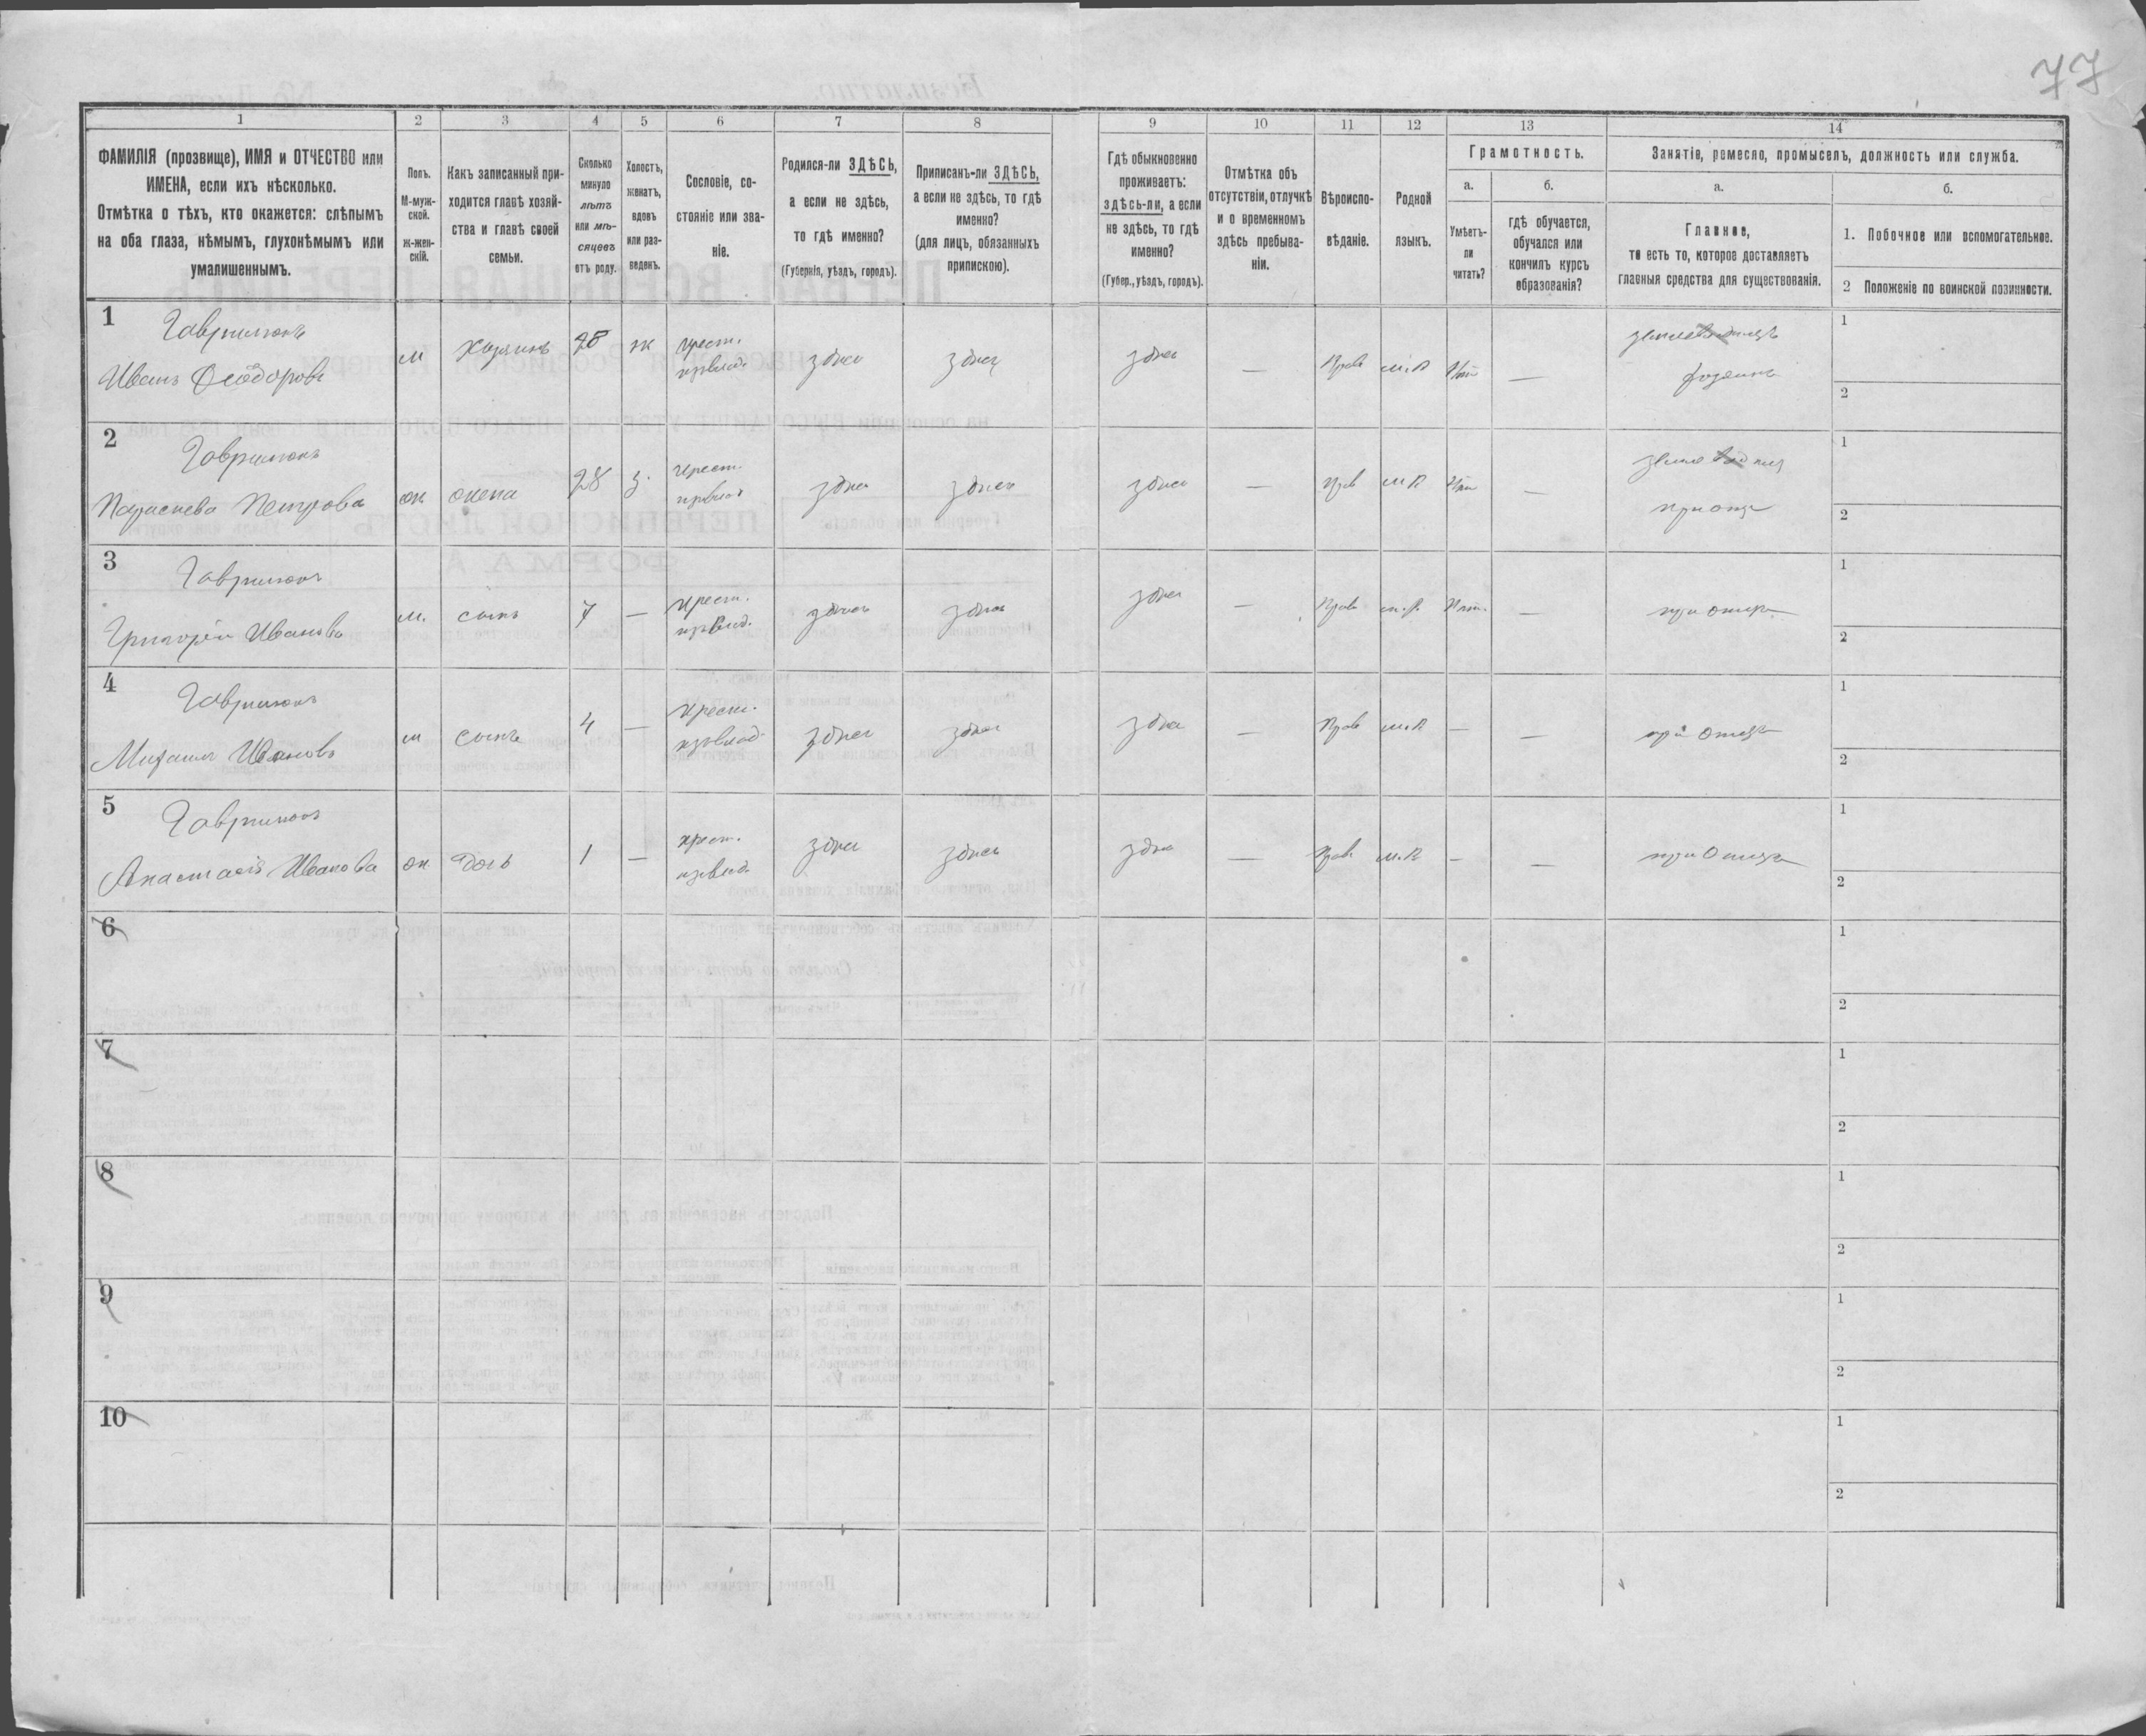 77
1 2 3 4 5 6 7 8 9 10 11 12 13 14
ФАМИЛІЯ (прозвище), ИМЯ и ОТЧЕСТВО или
ИМЕНА, если ихъ нѣсколько.
Отмѣтка о тѣхъ, кто окажется: слѣпымъ
на оба глаза, нѣмымъ, глухонѣмымъ или
умалишеннымъ.
Полъ.
М-муж-
ской.
Ж-жен-
скій.
Какъ записанный при-
ходится главѣ хозяй-
ства и главѣ своей
семьи.
Сколько
минуло
лѣтъ
или мѣ-
сяцевъ
отъ роду.
Холостъ,
женатъ,
вдовъ
или раз-
веденъ.
Сословіе, со-
стояніе или зва-
ніе.
Родился-ли ЗДѢСЬ,
а если не здѣсь,
то гдѣ именно?
(Губернія, уѣздъ, городъ).
Приписанъ-ли ЗДѢСЬ,
а если не здѣсь, то гдѣ
именно?
(для лицъ, обязанныхъ
припискою).
Гдѣ обыкновенно
проживаетъ:
здѣсь-ли, а если
не здѣсь, то гдѣ
именно?
(Губер., уѣздъ, городъ).
Отмѣтка объ
отсутствіи, отлучкѣ
и о временномъ
здѣсь пребыва-
ніи.
Вѣроиспо-
вѣданіе.
Родной
языкъ.
Грамотность.
а.
Умѣетъ-
ли
читать?
б.
гдѣ обучается,
обучался или
кончилъ курсъ
образованія?
Занятіе, ремесло, промыселъ, должность или служба.
а.
Главное,
то есть то, которое доставляетъ
главныя средства для существованія.
б.
1. Побочное или вспомогательное.
2 Положеніе по воинской повинности.
1
Гаврилюкъ
Иванъ Феодоровъ
м
хозяинъ
28
ж
крест.
здесь
здесь
здесь
—
Прав
м.р
—
хозяинъ
1
2
2
Гаврилюкъ
Параскева Петрова
ж
жена
28
з.
крест.
здесь
здесь
здесь
—
прав
м р
—
1
2
3
Гаврилюкъ
Григорій Ивановъ
м.
сынъ
7
—
крест.
здесь
здесь
здесь
—
Прав
м.р.
—
при отцѣ
1
2
4
Гаврилюкъ
Михаилъ Ивановъ
м
сынъ
4
—
крест.
здесь
здесь
здесь
—
Прав
м.р
—
—
при отцѣ
1
2
5
Гаврилюкъ
Анастасія Иванова
ж
дочь
1
—
крест.
здесь
здесь
здесь
—
Прав
м.р
—
—
при отцѣ
1
2
6
1
2
7
1
2
8
1
2
9
1
2
10
1
2